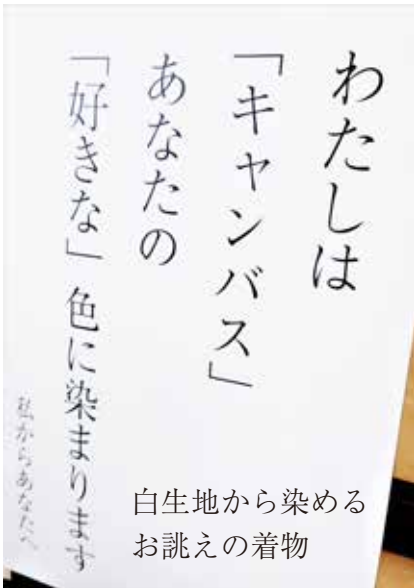 わたしは
「キャンバス」
あなたの
「好きな」色に染まります
私からあなたへ
白生地から染める
お誂えの着物